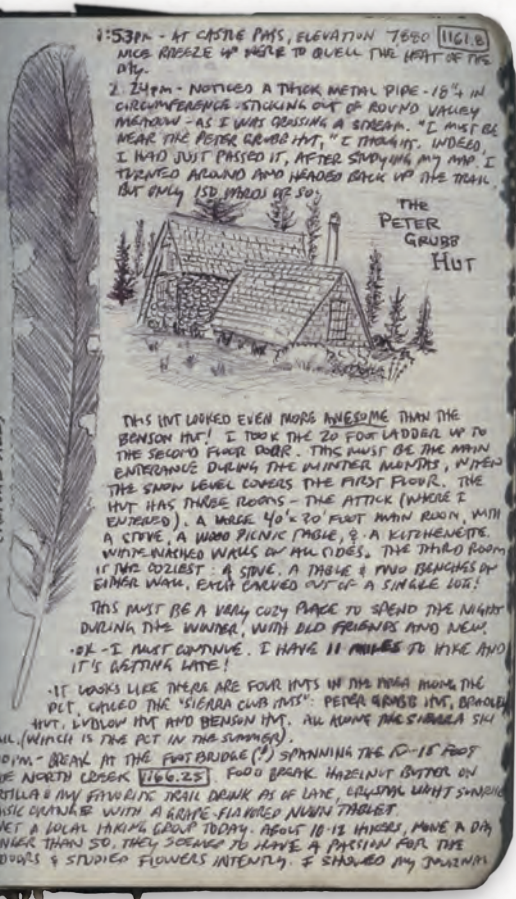 1:53PM - AT CASTLE PASS, ELEVATION 7880 1161.8
NICE BREEZE UP HERE TO QUELL THE HEAT OF THE
DAY.
2:24PM - NOTICED A THICK METAL PIPE - 18" IN
CIRCUMFERENCE - STICKING OUT OF ROUND VALLEY
MEADOW - AS I WAS CROSSING A STREAM. "I MUST BE
NEAR THE PETER GRUBB HUT," I THOUGHT. INDEED,
I HAD JUST PASSED IT, AFTER STUDYING MY MAP. I
TURNED AROUND AND HEADED BACK UP THE TRAIL
BUT ONLY 150 YARDS OR SO.
THE
PETER
GRUBB
HUT
THIS HUT LOOKED EVEN MORE AWESOME THAN THE
BENSON HUT! I TOOK THE 20 FOOT LADDER UP TO
THE SECOND FLOOR DOOR. THIS MUST BE THE MAIN
ENTERANCE DURING THE WINTER MONTHS, WHEN
THE SNOW LEVEL COVERS THE FIRST FLOOR. THE
HUT HAS THREE ROOMS - THE ATTICK (WHERE I
ENTERED). A LARGE 40'x20' FOOT MAIN ROOM, WITH
A STOVE, A WOOD PICNIC TABLE, & A KITCHENETTE.
WHITE WASHED WALLS ON ALL SIDES. THE THIRD ROOM
IS THE COZIEST: A STOVE, A TABLE & TWO BENCHES ON
EITHER WALL, EACH CARVED OUT OF A SINGLE LOG!
THIS MUST BE A VERY COZY PLACE TO SPEND THE NIGHT
DURING THE WINTER, WITH OLD FRIENDS AND NEW.
·OK - I MUST CONTINUE. I HAVE 11 MILES TO HIKE AND
IT'S GETTING LATE!
·IT LOOKS LIKE THERE ARE FOUR HUTS IN THE AREA ALONG THE
PCT, CALLED THE "SIERRA CLUB HUTS": PETER GRUBB HUT, BRADLEY
HUT, LUDLOW HUT AND BENSON HUT. ALL ALONG THE SIERRA SKI
(WHICH IS THE PCT IN THE SUMMER).
PM - BREAK AT THE FOOTBRIDGE (!) SPANNING THE 15 FOOT
NORTH CREEK 1166.25 FOOD BREAK. HAZELNUT BUTTER ON
TILLA & MY FAVORITE TRAIL DRINK AS OF LATE, CRYSTAL LIGHT SUNRISE
SIC ORANGE WITH A GRAPE-FLAVORED NUUN TABLET.
MET A LOCAL HIKING GROUP TODAY. ABOUT 10-12 HIKERS, NONE A DAY
NGER THAN 50. THEY SEEMED TO HAVE A PASSION FOR THE
DOORS & STUDIED FLOWERS INTENTLY. I SHOWED MY JOURNAL